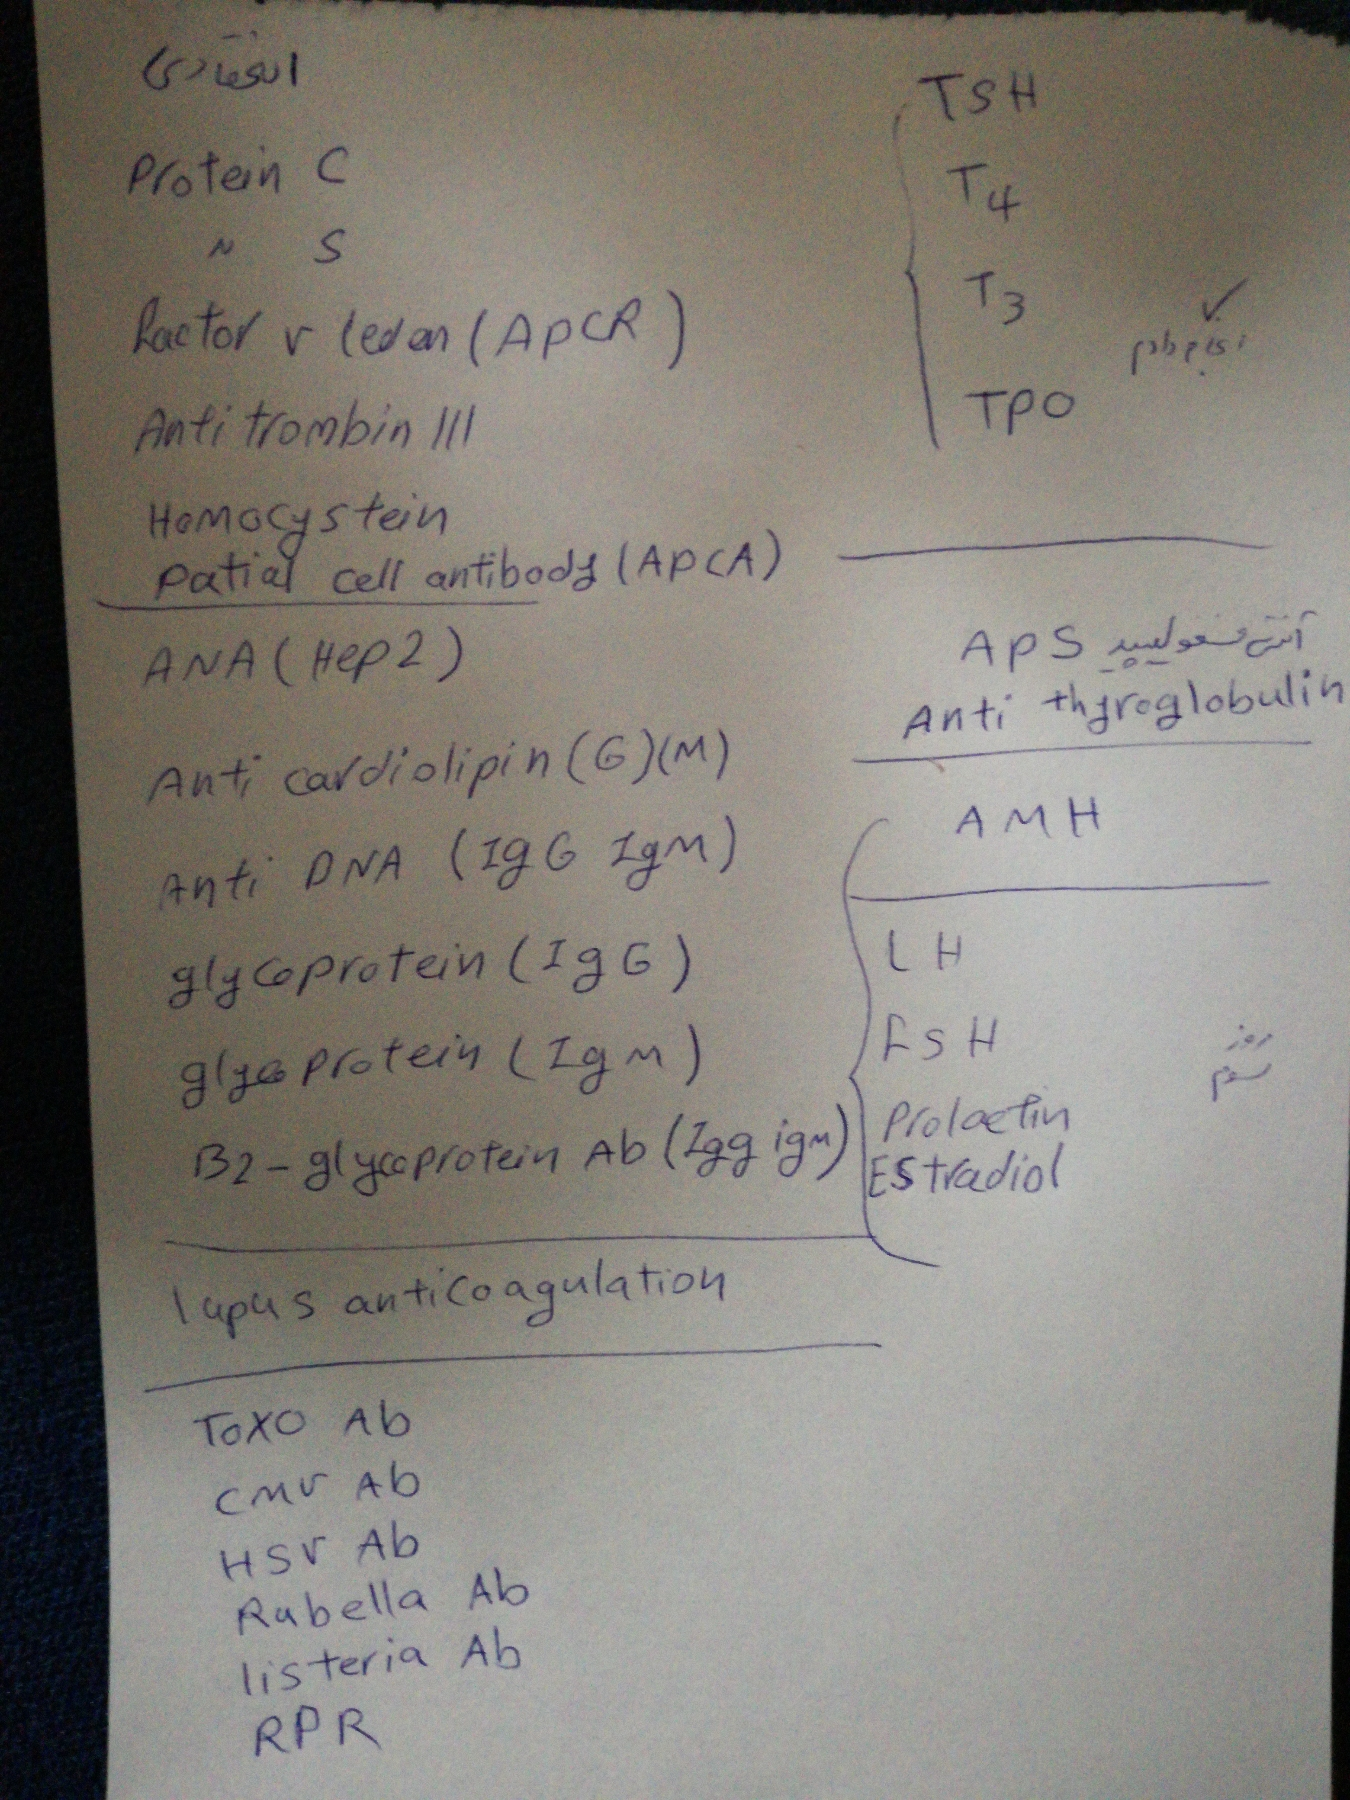 Protein C
" S
Factor v leden (APCR)
Anti trombin III
Homocystein
Patial cell antibody (APCA)
ANA (Hep2)
Anti cardiolipin (G)(M)
Anti DNA (IgG IgM)
glycoprotein (IgG)
glycoprotein (IgM)
B2-glycoprotein Ab (Igg igm)
lupus anticoagulation
Toxo Ab
CMV Ab
HSV Ab
Rubella Ab
listeria Ab
RPR
TSH
T4
T3
TPO
APS آنتی فسفولیپید
Anti thyroglobulin
AMH
LH
FSH
روز
سوم
Prolactin
Estradiol